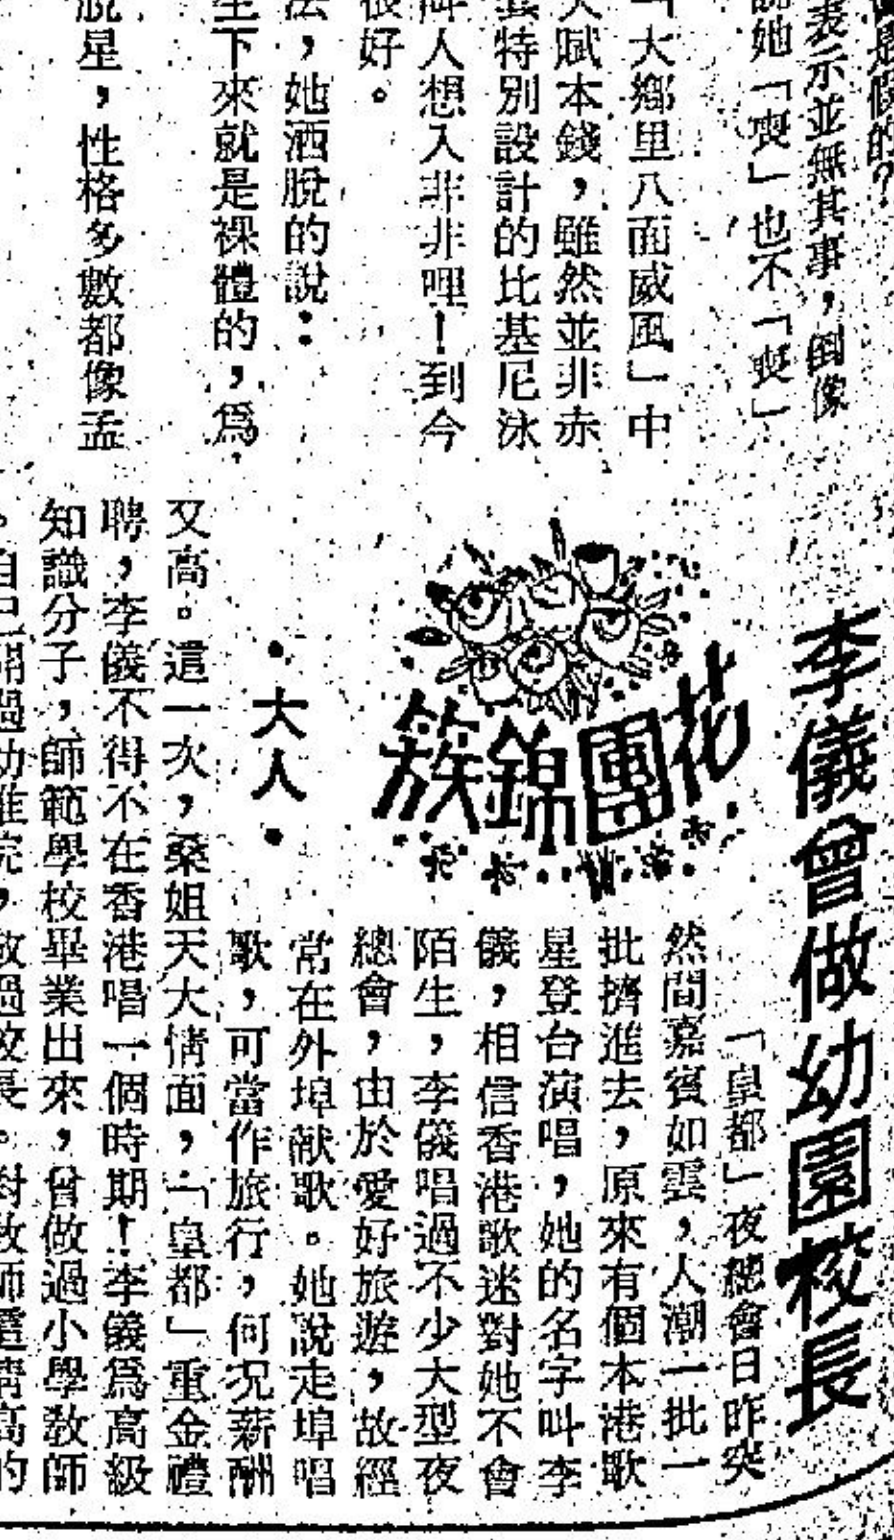 是假的?
表示並無其事，倒像
說她「喪」也不「喪」
「大鄉里八面威風」中
天賦本錢，雖然並非赤
特別設計的比基尼泳
人想入非非哩！到今
很好。
法，她洒脫的說：
生下來就是裸體的，爲
脫星，性格多數都像孟
李儀曾做幼園校長
花團錦簇
•大人•
「皇都」夜總會日昨突
然間嘉賓如雲，人潮一批一
批擠進去，原來有個本港歌
星登台演唱，她的名字叫李
儀，相信香港歌迷對她不會
陌生，李儀唱過不少大型夜
總會，由於愛好旅遊，故經
常在外埠献歌。她說走埠唱
歌，可當作旅行，何况薪酬
又高。這一次，桑姐天大情面，「皇都」重金禮
聘，李儀不得不在香港唱一個時期！李儀爲高級
知識分子，師範學校畢業出來，曾做過小學教師
。自己開過幼稚院，做過校長。對教師還清高的